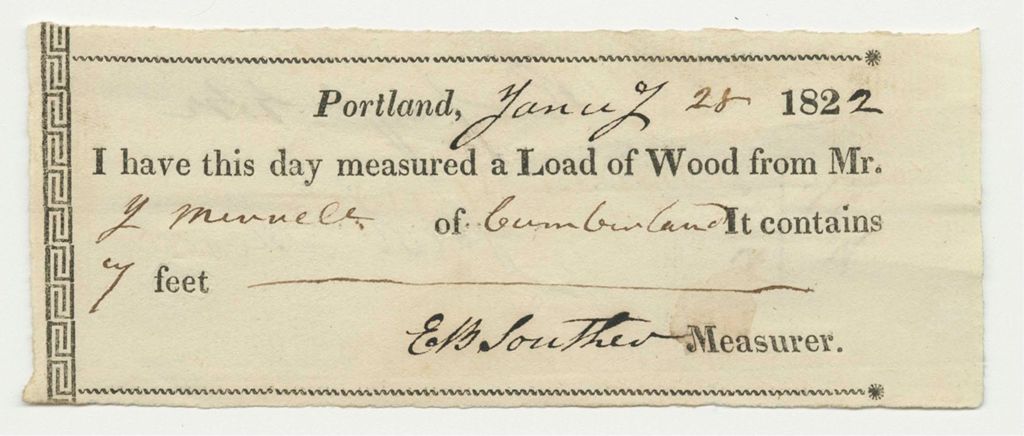 Portland, Janu.y 28 1822
I have this day measured a Load of Wood from Mr.
of Cumberland It contains
7 feet
EB Souther Measurer.